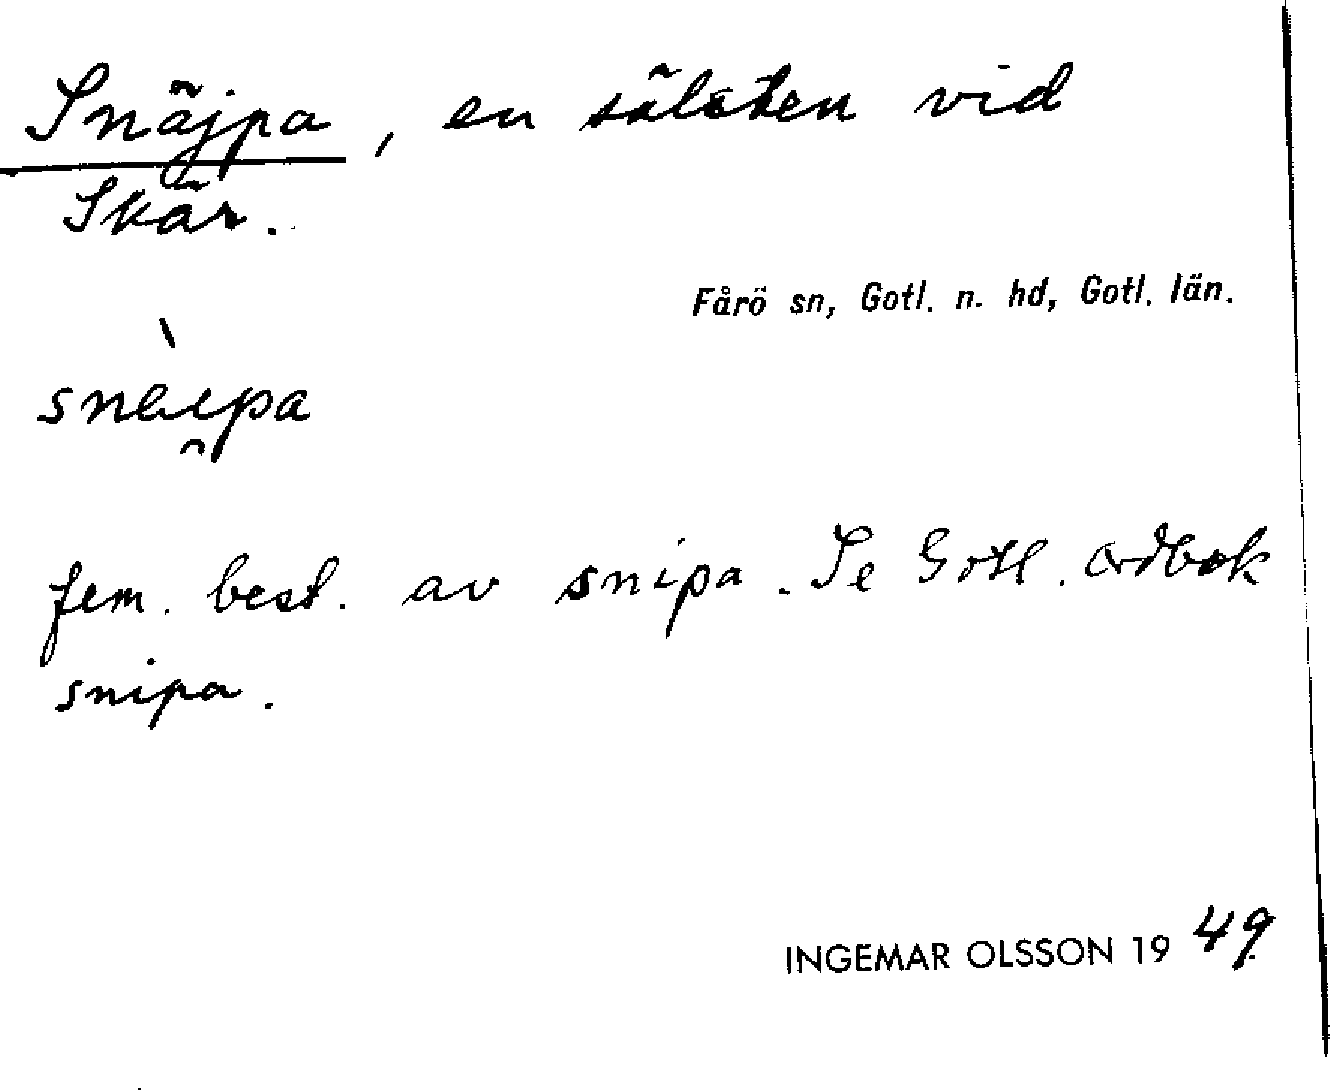 Snäjpa, en sälsten vid
Skär.
Fårö sn, Gotl. n. hd, Gotl. län.
snèi̯pa
fem. best. av snipa. Se Gotl. ordbok
snipa.
INGEMAR OLSSON 1949